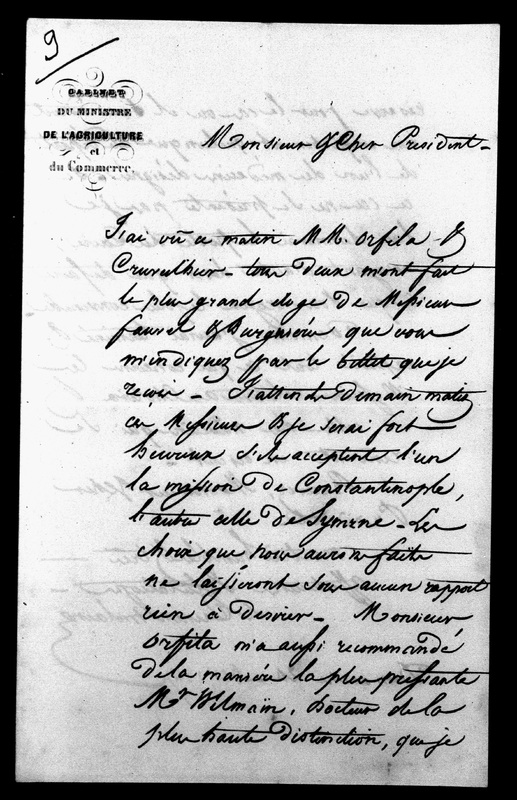 9
CABINET
DU MINISTRE
DE L'AGRICULTURE
et
du Commerce.
Monsieur & Cher Président -
J'ai vû ce matin MM. Orfila &
Cruveilhier - tous deux m'ont fait
le plus grand éloge de Messieurs
fauvel & Burguières que vous
m'indiquez par le billet que je
reçois - J'attends demain matin
ces Messieurs & je serai fort
heureux s'ils acceptent l'un
la mission de Constantinople,
l'autre celle de Symrne - Les
choix que nous aurons faits
ne laisseront sous aucun rapport
rien à désirer - Monsieur
Orfila m'a aussi recommandé
de la manière la plus pressante
Mr. Docteur de la
plus haute distinction, que je